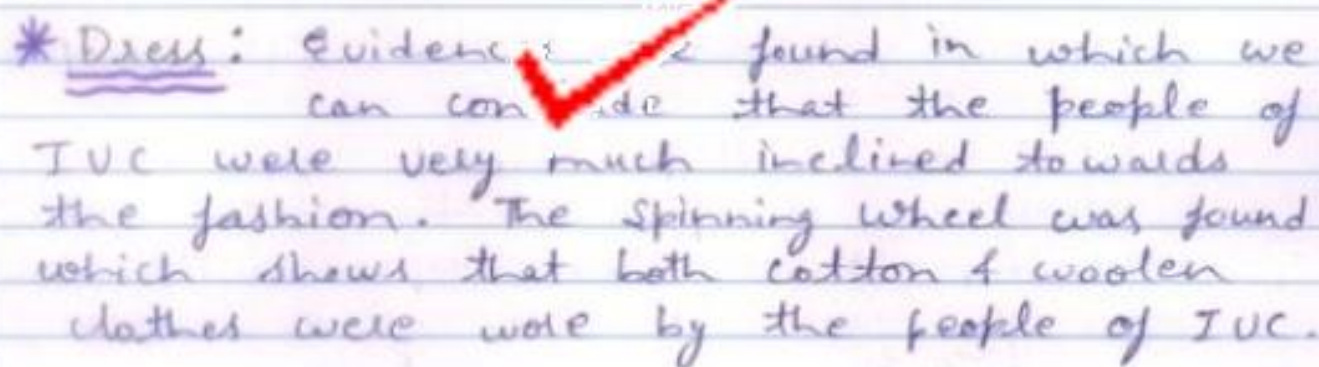 * Dress: Evidenc found in which we
can con de that the people of
IVC were very much inclined towards
the fashion. The Spinning Wheel was found
which shows that both cotton & woolen
clothes were wore by the people of IVC.